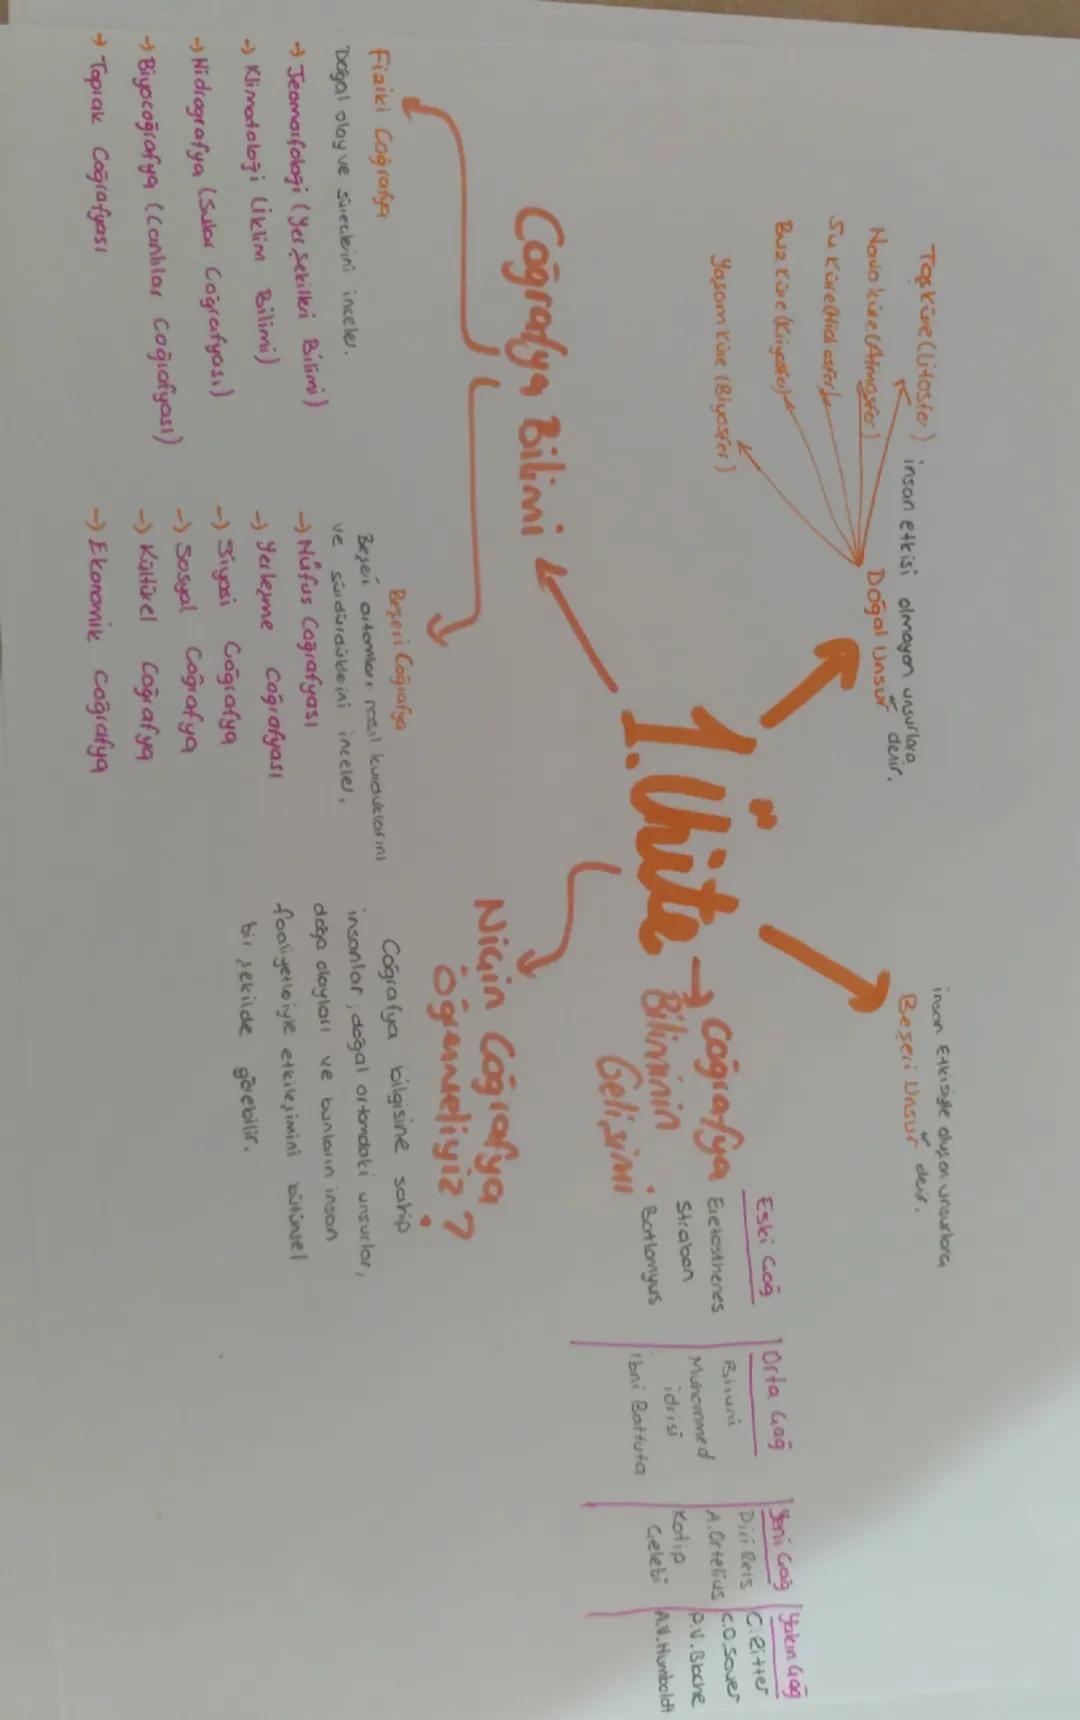 insan etkisi olmayan unsurlara
Doğal Unsur denir.
Taş küre (Litosfer)
Hava küre (Atmosfer)
Su küre (Hidrosfer)
Buz küre (Kriyosfer)
Yaşam küre (Biyosfer)
insan Etkisiyle oluşan unsurlara
Beşeri Unsur denir.
1. Ünite
Coğrafya
Biliminin
Gelişimi
Eski Çağ
Eretosthenes
Strabon
Batlamyus
Orta Çağ
Biruni
Muhammed
idrisi
ibni Battuta
Yeni Çağ
Piri Reis
A. Ortelius
Katip
Çelebi
Yakın Çağ
C. Ritter
C.O Sauer
P.V. Blache
A.V. Humboldt
Coğrafya Bilimi
Fiziki Coğrafya
Doğal olay ve süreçlerini inceler.
→ Jeomorfoloji (Yer şekilleri Bilimi)
→ Klimatoloji (iklim Bilimi)
→ Hidrografya (Sular Coğrafyası)
→ Biyocoğrafya (Canlılar Coğrafyası)
→ Toprak Coğrafyası
Beşeri Coğrafya
Beşeri ortamları nasıl kurduklarını
ve sürdürdüklerini inceler.
→ Nüfus Coğrafyası
→ Yerleşme Coğrafyası
→ Siyasi Coğrafya
→ Sosyal Coğrafya
→ Kültürel Coğrafya
→ Ekonomik Coğrafya
Niçin Coğrafya
Öğrenmeliyiz?
Coğrafya bilgisine sahip
insanlar; doğal ortamdaki unsurlar,
doğa olayları ve bunların insan
faaliyetleriyle etkileşimini bütünsel
bir şekilde görebilir.